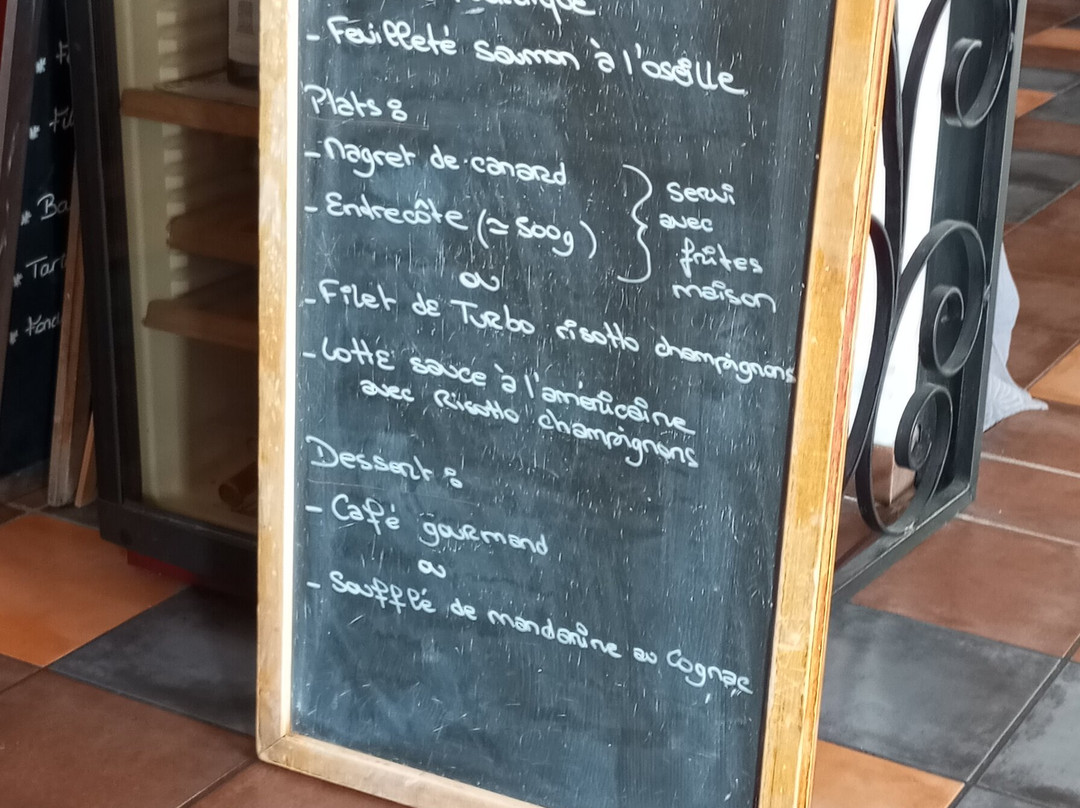 - Feuilleté saumon à l'oseille
Plats :
- Magret de canard
- Entrecôte (≃ 500g)
servi
avec
frites
maison
ou
- Filet de Turbo risotto champignons
- Lotte sauce à l'américaine
avec Risotto champignons
Dessert :
- Café gourmand
ou
- Soufflé de mandarine au Cognac
* Ba
* Tar